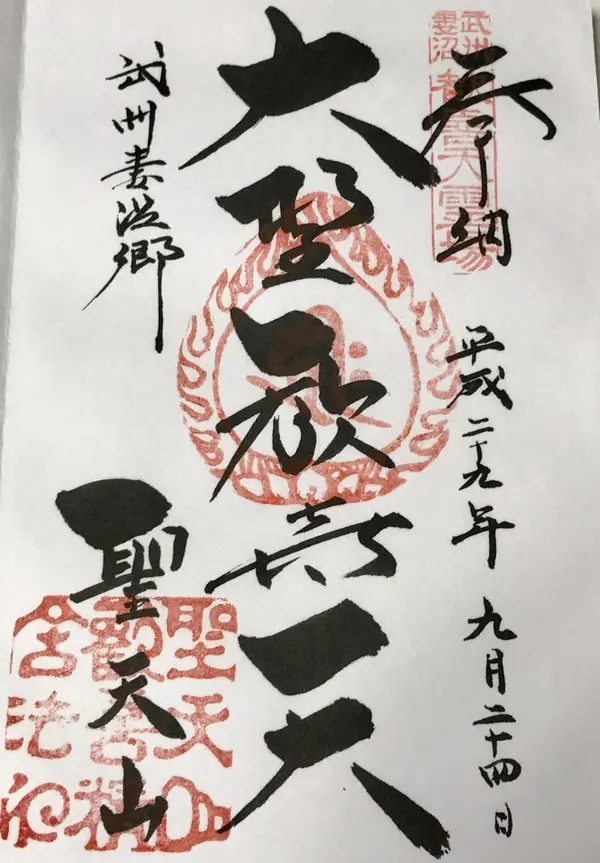 武州
妻沼
歓喜天霊場
奉納
平成二十九年 九月二十四日
大聖歓喜天
武州妻沼郷
聖天山
聖天山
歓喜精
舎法印